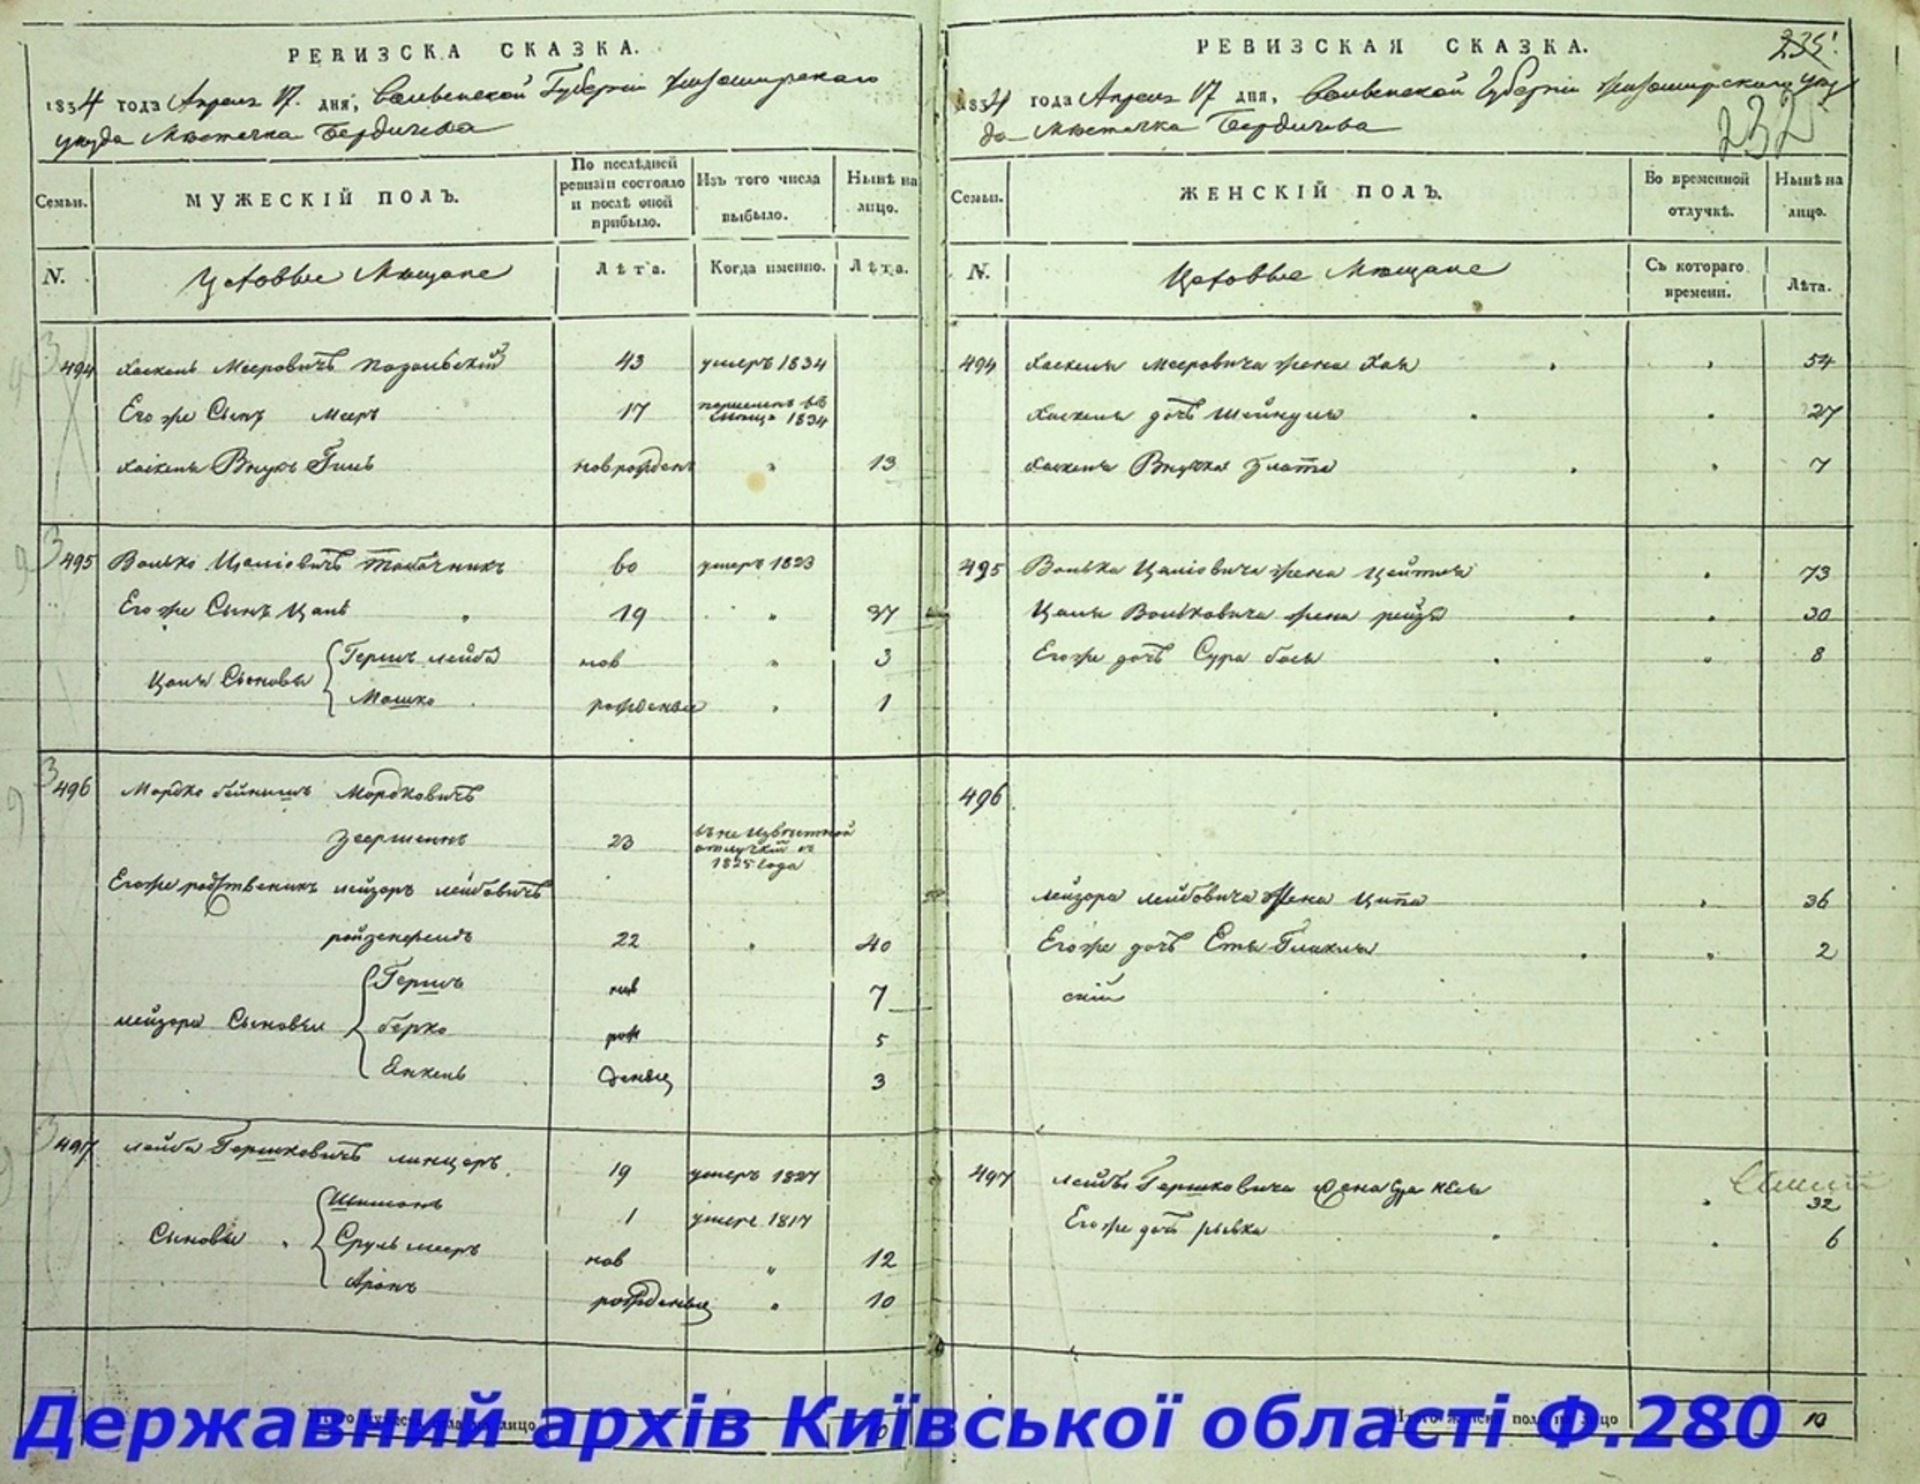 РЕВИЗСКА СКАЗКА.
1834 года Апреля 17. дня, Волынской Губернии Житомирского
уезда Местечка Бердичева
Семьи.
МУЖЕСКІЙ ПОЛЪ.
По послѣдней ревизіи состояло и послѣ оной прибыло.
Изъ того числа выбыло.
Нынѣ на лицо.
N.
Цеховые Мещане
Лѣта.
Когда именно.
Лѣта.
494 Хаскель Мееровичъ Подольскій 43 умеръ 1834
Его же Сынъ Мееръ 17 1834
Хаскеля Внукъ новорожденъ 13
495 Волько Цаліовичъ Табачникъ 60 умеръ 1823
Его же Сынъ Цаль 19 37
Цаля Сыновья Гершъ лейба нов 3
Мошко рожденые 1
496 Мордко бейнишъ Мордковичъ
23 въ неизвестной отлучкѣ с 1825 года
Его же родственикъ лейзоръ лейбовичъ
22 40
лейзора Сыновья Гершъ нов 7
берко рож 5
Янкель деные 3
497 лейба Гершковичъ линцеръ 19 умеръ 1827
Сыновья Шимонъ 1 умеръ 1817
Сруль мееръ нов 12
Аронъ рожденые 10
РЕВИЗСКАЯ СКАЗКА.
235
232
1834 года Апреля 17 дня, Волынской Губернии Житомирского уез
да Местечка Бердичева
Семьи.
ЖЕНСКІЙ ПОЛЪ.
Во временной отлучкѣ.
Нынѣ на лицо.
N.
Цеховые Мещане
Съ котораго времени.
Лѣта.
494 Хаскеля Мееровича жена Хая 54
Хаскеля дочь Шейндля 27
Хаскеля Внучка Злата 7
495 Волька Цаліовича жена Цейтля 73
Цаля Вольковича жена рейзя 30
Его же дочь Сура бася 8
496
лейзора лейбовича Жена Ципа 36
Его же дочь Эстя 2
497 лейбы Гершковича жена 32
Его же дочь рывка 6
Итого женска полу на лицо 10
Державний архів Київської області Ф.280